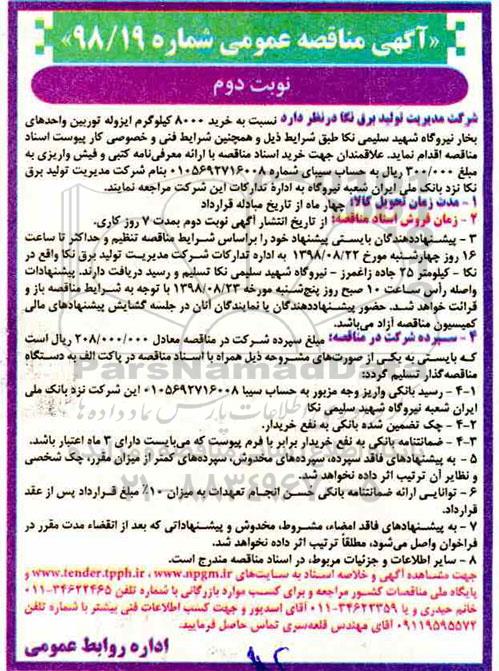 «آگهی مناقصه عمومی شماره ۹۸/۱۹»
نوبت دوم
شرکت مدیریت تولید برق نکا درنظر دارد نسبت به خرید ۸۰۰۰ کیلوگرم ایزوله توربین واحدهای
بخار نیروگاه شهید سلیمی نکا طبق شرایط ذیل و همچنین شرایط فنی و خصوصی کار پیوست اسناد
مناقصه اقدام نماید. علاقمندان جهت خرید اسناد مناقصه با ارائه معرفی‌نامه کتبی و فیش واریزی به
مبلغ ۳۰۰/۰۰۰ ریال به حساب سیبای شماره ۰۱۰۵۶۹۲۷۱۶۰۰۸ بنام شرکت مدیریت تولید برق
نکا نزد بانک ملی ایران شعبه نیروگاه به ادارهٔ تدارکات این شرکت مراجعه نمایند.
۱- مدت زمان تحویل کالا: چهار ماه از تاریخ مبادله قرارداد
۲- زمان فروش اسناد مناقصه: از تاریخ انتشار آگهی نوبت دوم بمدت ۷ روز کاری.
۳- پیشنهاددهندگان بایستی پیشنهاد خود را براساس شرایط مناقصه تنظیم و حداکثر تا ساعت
۱۶ روز چهارشنبه مورخ ۱۳۹۸/۰۸/۲۲ به اداره تدارکات شرکت مدیریت تولید برق نکا واقع در
نکا - کیلومتر ۲۵ جاده زاغمرز - نیروگاه شهید سلیمی نکا تسلیم و رسید دریافت دارند. پیشنهادات
واصله رأس ساعت ۱۰ صبح روز پنج‌شنبه مورخه ۱۳۹۸/۰۸/۲۳ با توجه به شرایط مناقصه باز و
قرائت خواهد شد. حضور پیشنهاددهندگان یا نمایندگان آنان در جلسه گشایش پیشنهادهای مالی
کمیسیون مناقصه آزاد می‌باشد.
۴- سپرده شرکت در مناقصه: مبلغ سپرده شرکت در مناقصه معادل ۲۰۸/۰۰۰/۰۰۰ ریال است
که بایستی به یکی از صورت‌های مشروحه ذیل همراه با اسناد مناقصه در پاکت الف به دستگاه
مناقصه‌گذار تسلیم گردد:
۴-۱- رسید بانکی واریز وجه مزبور به حساب سیبا ۰۱۰۵۶۹۲۷۱۶۰۰۸ این شرکت نزد بانک ملی
ایران شعبه نیروگاه شهید سلیمی نکا
۴-۲- چک تضمین شده بانکی به نفع خریدار.
۴-۳- ضمانتنامه بانکی به نفع خریدار برابر با فرم پیوست که می‌بایست دارای ۳ ماه اعتبار باشد.
۵- به پیشنهادهای فاقد سپرده، سپرده‌های مخدوش، سپرده‌های کمتر از میزان مقرر، چک شخصی
و نظایر آن ترتیب اثر داده نخواهد شد.
۶- توانایی ارائه ضمانتنامه بانکی حسن انجام تعهدات به میزان ۱۰٪ مبلغ قرارداد پس از عقد
قرارداد.
۷- به پیشنهادهای فاقد امضاء، مشروط، مخدوش و پیشنهاداتی که بعد از انقضاء مدت مقرر در
فراخوان واصل می‌شود، مطلقاً ترتیب اثر داده نخواهد شد.
۸- سایر اطلاعات و جزئیات مربوط، در اسناد مناقصه مندرج است.
جهت مشاهده آگهی و خلاصه اسناد به سایت‌های www.npgm.ir ، www.tender.tpph.ir و
پایگاه ملی مناقصات کشور مراجعه و برای کسب موارد بازرگانی با شماره تلفن ۳۴۶۲۲۴۶۵-۰۱۱
خانم حیدری و یا ۳۴۶۲۲۳۵۹-۰۱۱ آقای اسدپور و جهت کسب اطلاعات فنی بیشتر با شماره تلفن
۰۹۱۱۹۵۹۵۵۷۲ آقای مهندس قلعه‌سری تماس حاصل فرمایید.
اداره روابط عمومی
ParsNamadData
۰۲۱-۸۸۳۴۹۶۷۰-۵